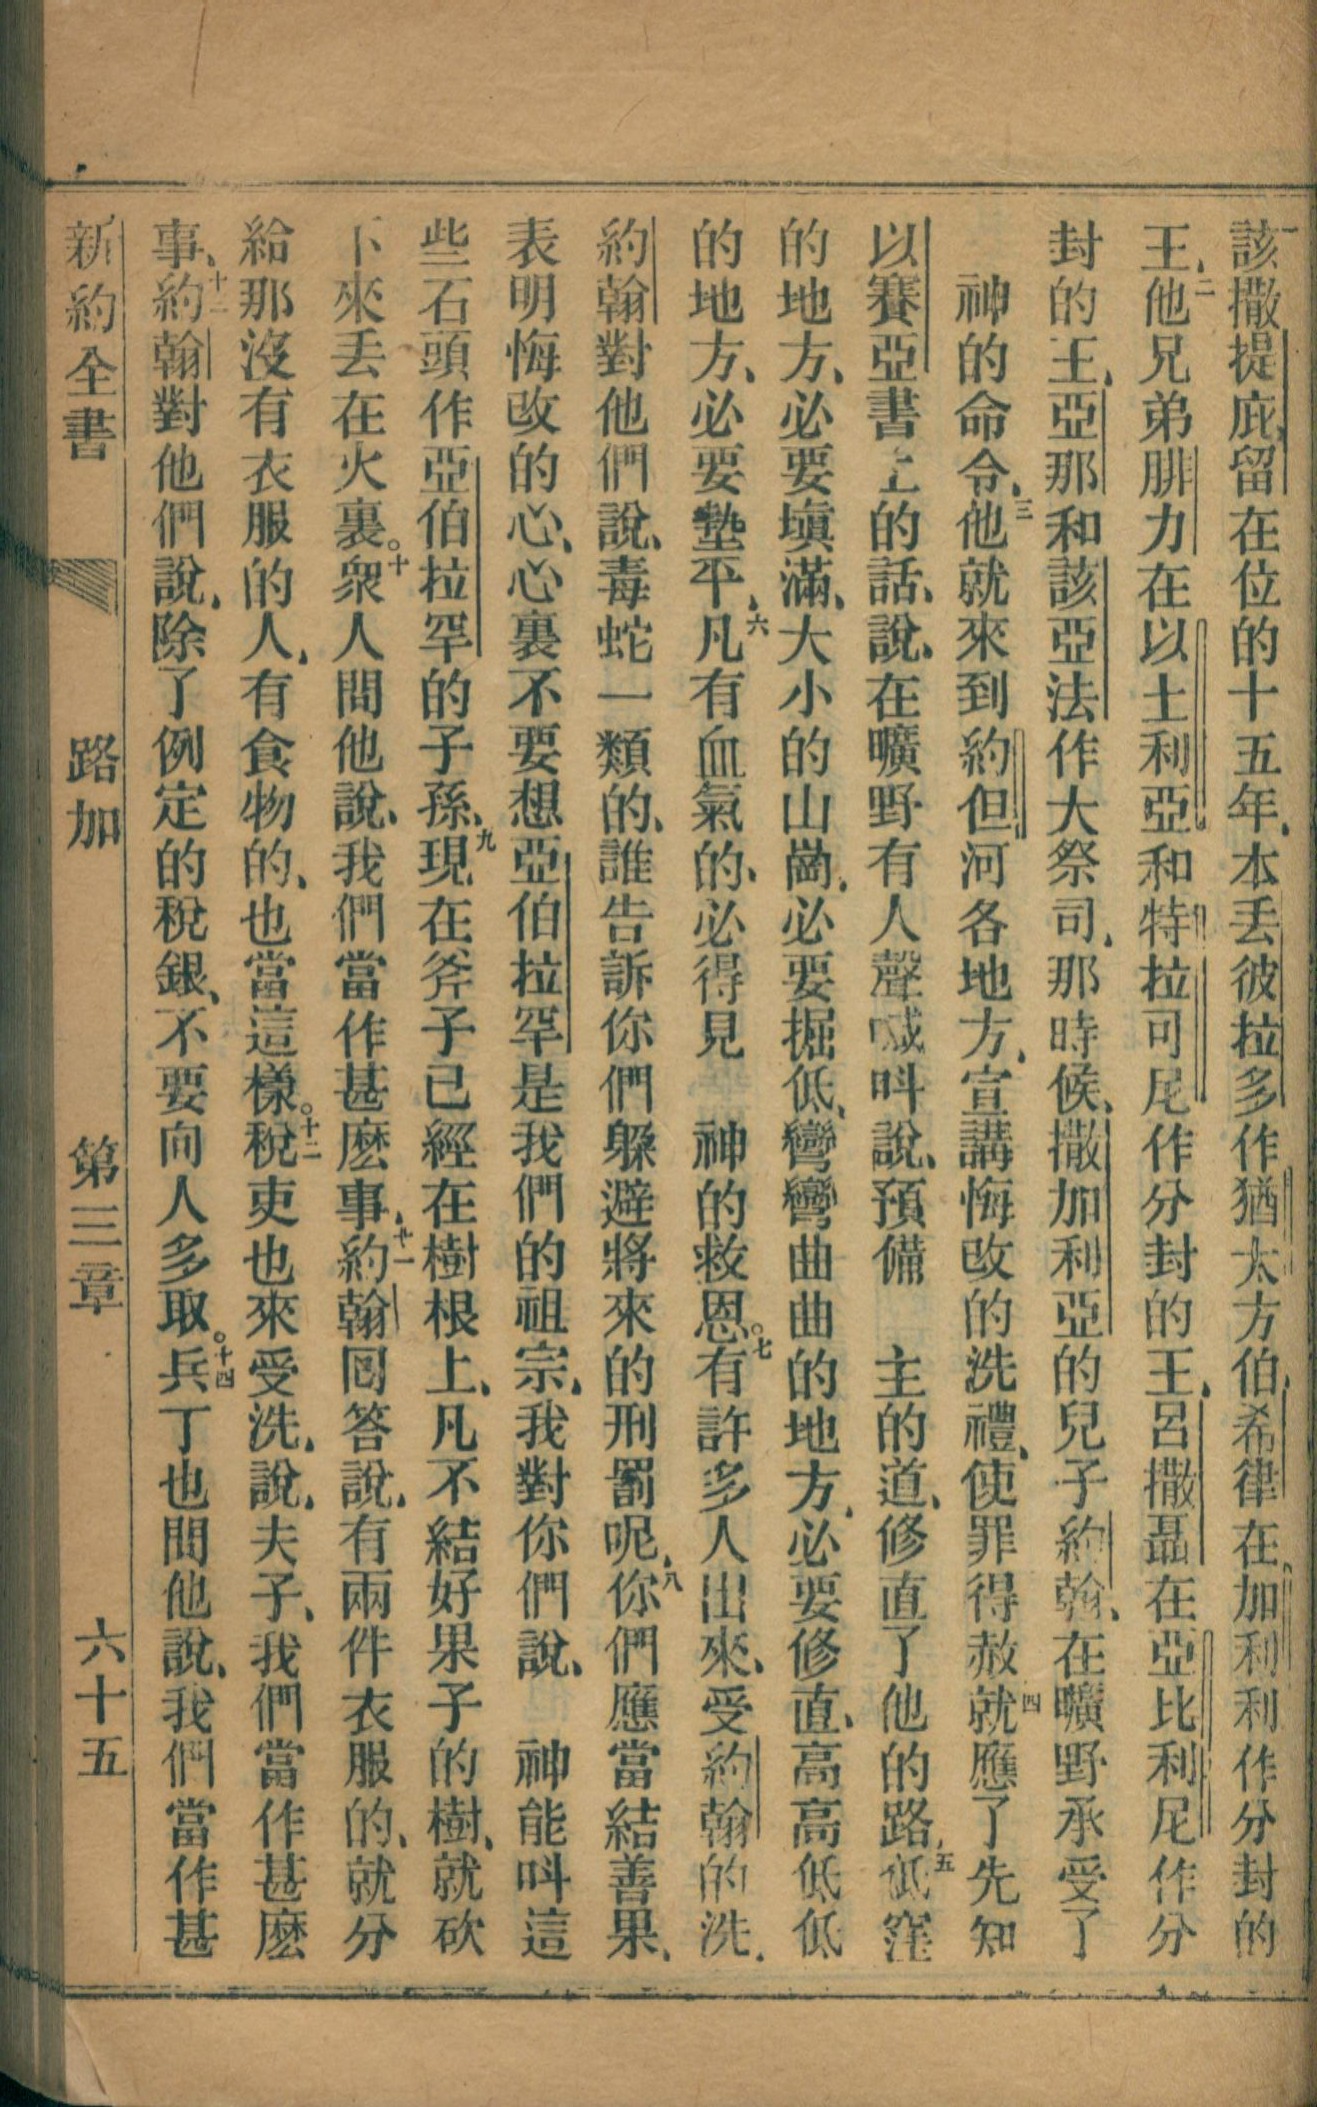 一該撒提庇留在位的十五年、本丢彼拉多作猶太方伯、希律在加利利作分封的
王、二他兄弟腓力在以土利亞和特拉可尼作分封的王、呂撒聶在亞比利尼作分
封的王、亞那和該亞法作大祭司、那時候、撒加利亞的兒子約翰、在曠野承受了
神的命令、三他就來到約但河各地方、宣講悔改的洗禮、使罪得赦、四就應了先知
以賽亞書上的話、說、在曠野有人聲喊呌說、預備　主的道、修直了他的路、五低窪
的地方、必要塡滿、大小的山崗、必要掘低、彎彎曲曲的地方、必要修直、高高低低
的地方、必要墊平、六凡有血氣的、必得見　神的救恩。七有許多人出來、受約翰的洗、
約翰對他們說、毒蛇一類的、誰告訴你們躱避將來的刑罰呢、八你們應當結善果、
表明悔改的心、心裏不要想亞伯拉罕是我們的祖宗、我對你們說、　神能呌這
些石頭作亞伯拉罕的子孫、九現在斧子已經在樹根上、凡不結好果子的樹、就砍
下來丢在火裏。十衆人問他說、我們當作甚麽事、十一約翰囘答說、有兩件衣服的、就分
給那沒有衣服的人、有食物的、也當這樣。十二稅吏也來受洗、說、夫子、我們當作甚麽
事、十三約翰對他們說、除了例定的稅銀、不要向人多取。十四兵丁也問他說、我們當作甚
新約全書　路加　第三章　六十五